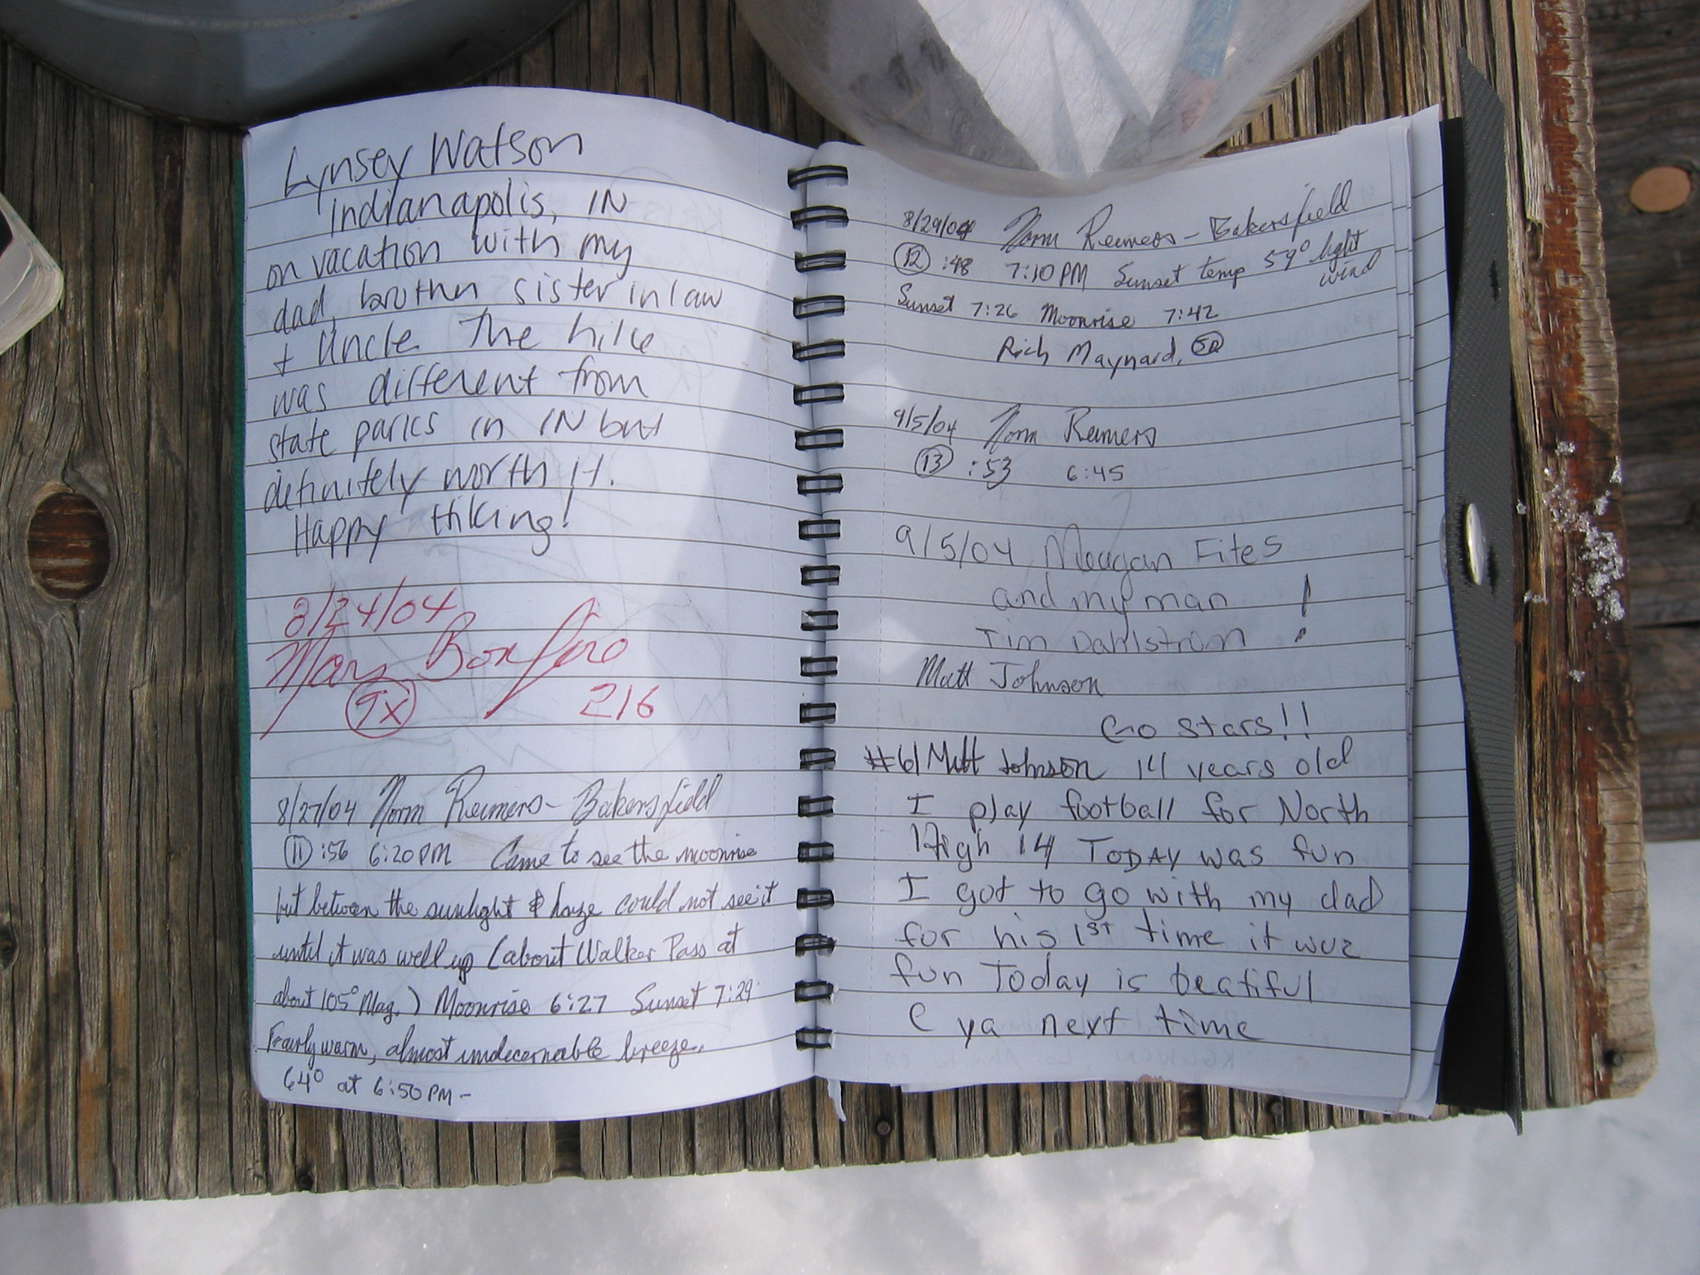 Lynsey Watson
Indianapolis, IN
on vacation with my
dad, brother sister in law
+ Uncle. The hike
was different from
state parks in IN but
definitely worth it.
Happy Hiking!
8/24/04
Mary
9x 216
8/27/04 Norm Reimers - Bakersfield
11 :56 6:20 PM Came to see the moonrise
but between the sunlight & haze could not see it
until it was well up (about Walker Pass at
about 105° Mag.) Moonrise 6:27 Sunset 7:29
Fairly warm, almost undecernable breeze.
64° at 6:50 PM -
8/29/04 Norm Reimers - Bakersfield
12 :48 7:10 PM Sunset temp 59° light
wind
Sunset 7:26 Moonrise 7:42
Rich Maynard,
9/5/04 Norm Reimers
13 :53 6:45
9/5/04 Meagan Fites
and my man !
Tim Dahlstrom
Matt Johnson
Go Stars!!
#61 Matt Johnson 14 years old
I play football for North
High 14 TODAY was fun
I got to go with my dad
for his 1st time it wuz
fun Today is beatiful
C ya next time